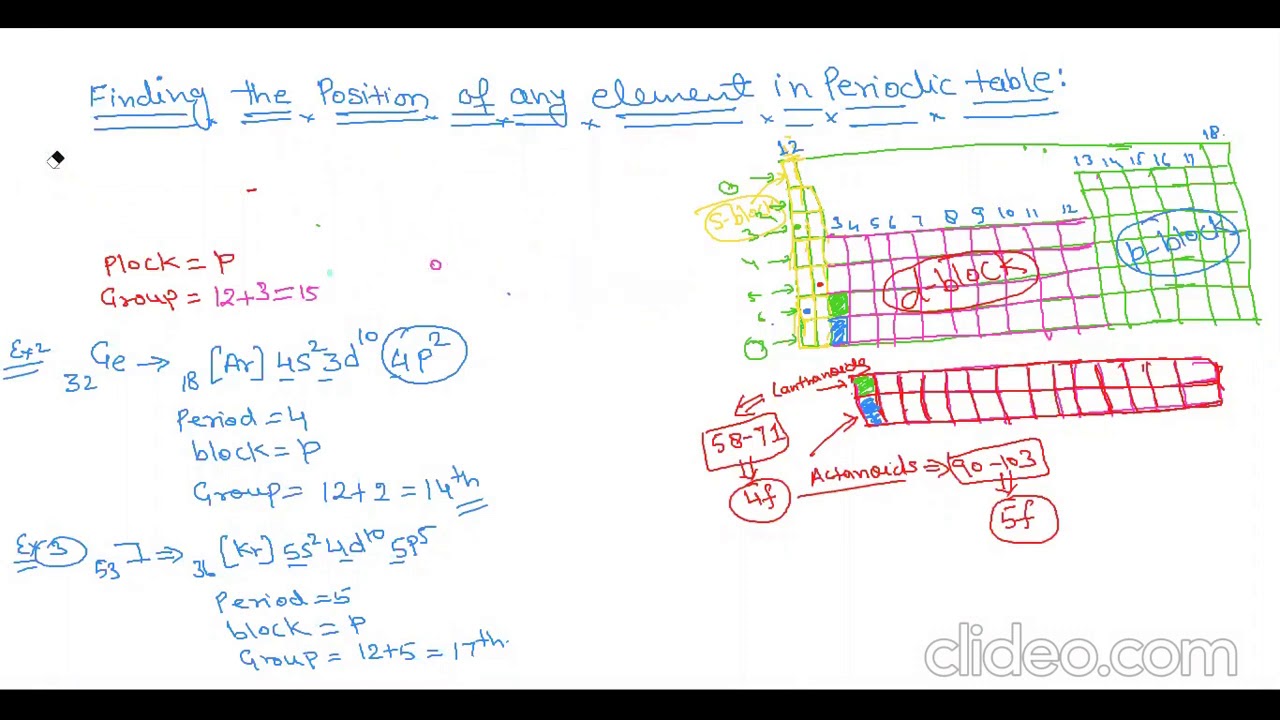 Finding the Position of any element in Periodic table:
Plock = P
Group = 12+3=15
Ex2 32Ge → 18[Ar] 4s² 3d¹⁰ 4p²
Period = 4
block = P
Group = 12+2 = 14th
Ex3 53I ⇒ 36[Kr] 5s² 4d¹⁰ 5p⁵
Period = 5
block = P
Group = 12+5 = 17th
12
18
13 14 15 16 17
3 4 5 6 7 8 9 10 11 12
s-block
2
3
4
5
6
7
d-block
p-block
Lanthanoids
58-71
4f
Actanoids ⇒ 90-103
5f
clideo.com